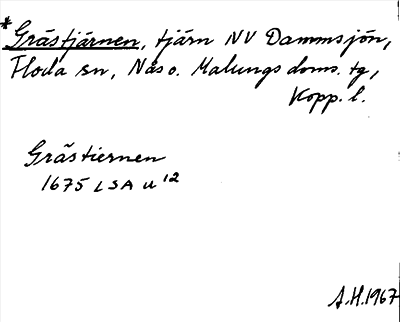 *Grästjärnen, tjärn NV Dammsjön,
Floda sn, Näs o. Malungs doms. tg,
Kopp. l.
Grästiernen
1675 LSA U 12
A.H. 1967